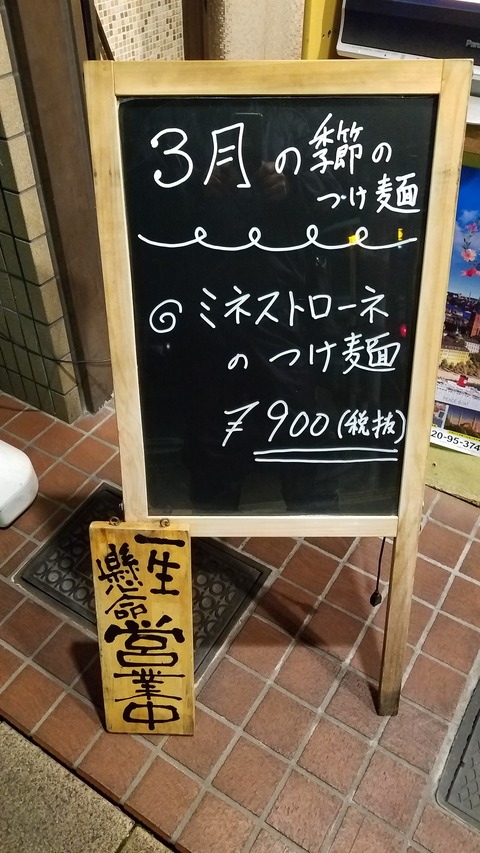 3月の季節の
つけ麺
ミネストローネ
のつけ麺
¥900(税抜)
一生
懸命
営業中
Pana
20-95-374